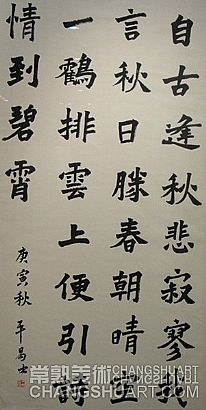 自古逢秋悲寂寥我
言秋日勝春朝晴空
一鶴排雲上便引詩
情到碧霄
庚寅秋
常熟美術 CHANGSHUART